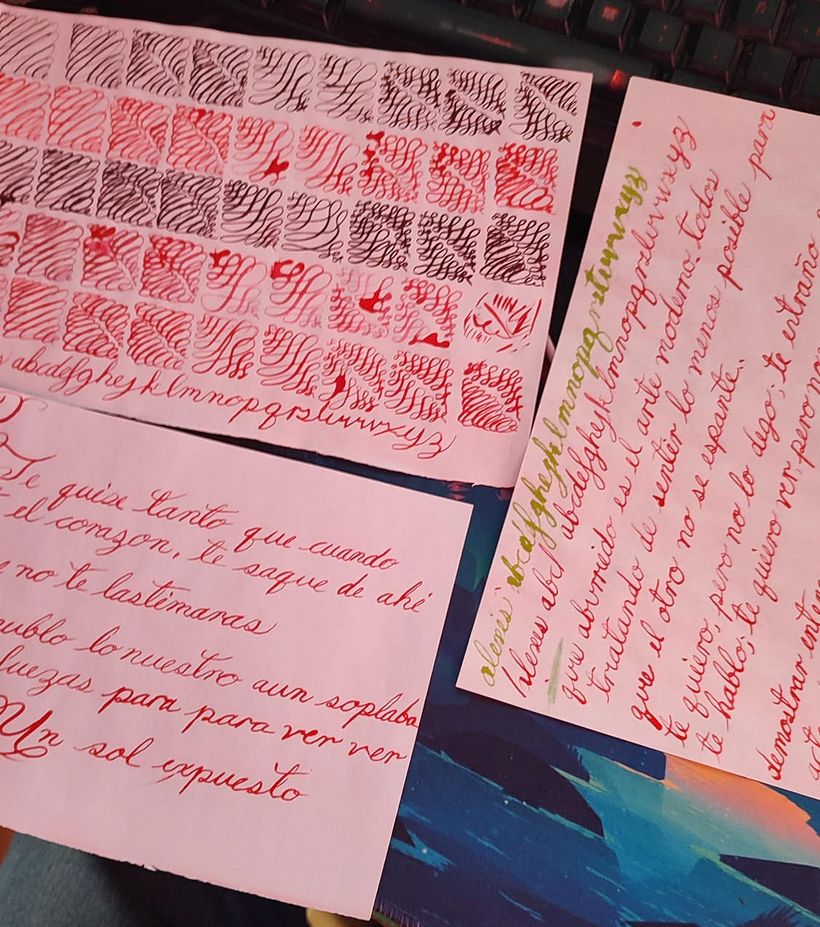 abcdefghyjklmnopqrstuvwxyz
Te quise tanto que cuando
el corazon, te saque de ahé
no te lastimaras
nublo lo nuestro aun soplaba
fuezas para para ver ver
Un sol expuesto
alexis abcdefghyjklmnopqrstuvwxyz
Alexes abd abcdefghyjklmnopqrstuvwxyz
que aburrido es el arte moderno. todos
tratando de sentir lo menos posible para
que el otro no se espante.
te quiero, pero no lo dego; te extraño
te hablo; te quiero ver, pero no
demostrar